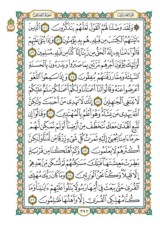 ۞ وَلَقَدْ وَصَّلْنَا لَهُمُ الْقَوْلَ لَعَلَّهُمْ يَتَذَكَّرُونَ ٥١ الَّذِينَ
آتَيْنَاهُمُ الْكِتَابَ مِن قَبْلِهِ هُم بِهِ يُؤْمِنُونَ ٥٢ وَإِذَا يُتْلَىٰ عَلَيْهِمْ
قَالُوا آمَنَّا بِهِ إِنَّهُ الْحَقُّ مِن رَّبِّنَا إِنَّا كُنَّا مِن قَبْلِهِ مُسْلِمِينَ ٥٣
أُولَٰئِكَ يُؤْتَوْنَ أَجْرَهُم مَّرَّتَيْنِ بِمَا صَبَرُوا وَيَدْرَءُونَ بِالْحَسَنَةِ
السَّيِّئَةَ وَمِمَّا رَزَقْنَاهُمْ يُنفِقُونَ ٥٤ وَإِذَا سَمِعُوا اللَّغْوَ
أَعْرَضُوا عَنْهُ وَقَالُوا لَنَا أَعْمَالُنَا وَلَكُمْ أَعْمَالُكُمْ سَلَامٌ عَلَيْكُمْ
لَا نَبْتَغِي الْجَاهِلِينَ ٥٥ إِنَّكَ لَا تَهْدِي مَنْ أَحْبَبْتَ وَلَٰكِنَّ
اللَّهَ يَهْدِي مَن يَشَاءُ وَهُوَ أَعْلَمُ بِالْمُهْتَدِينَ ٥٦ وَقَالُوا إِن نَّتَّبِعِ
الْهُدَىٰ مَعَكَ نُتَخَطَّفْ مِنْ أَرْضِنَا أَوَلَمْ نُمَكِّن لَّهُمْ
حَرَمًا آمِنًا يُجْبَىٰ إِلَيْهِ ثَمَرَاتُ كُلِّ شَيْءٍ رِّزْقًا مِّن لَّدُنَّا
وَلَٰكِنَّ أَكْثَرَهُمْ لَا يَعْلَمُونَ ٥٧ وَكَمْ أَهْلَكْنَا مِن قَرْيَةٍ
بَطِرَتْ مَعِيشَتَهَا فَتِلْكَ مَسَاكِنُهُمْ لَمْ تُسْكَن مِّن بَعْدِهِمْ
إِلَّا قَلِيلًا وَكُنَّا نَحْنُ الْوَارِثِينَ ٥٨ وَمَا كَانَ رَبُّكَ مُهْلِكَ
الْقُرَىٰ حَتَّىٰ يَبْعَثَ فِي أُمِّهَا رَسُولًا يَتْلُو عَلَيْهِمْ آيَاتِنَا وَمَا كُنَّا
مُهْلِكِي الْقُرَىٰ إِلَّا وَأَهْلُهَا ظَالِمُونَ ٥٩
٣٩٢